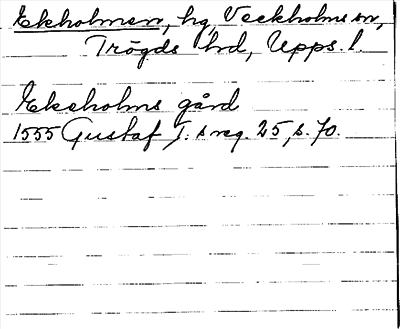 Ekholmen, hg, Veckholms sn,
Trögds hd, Upps. l.
Ekeholms gård
1555 Gustaf I:s reg. 25, s. 70.